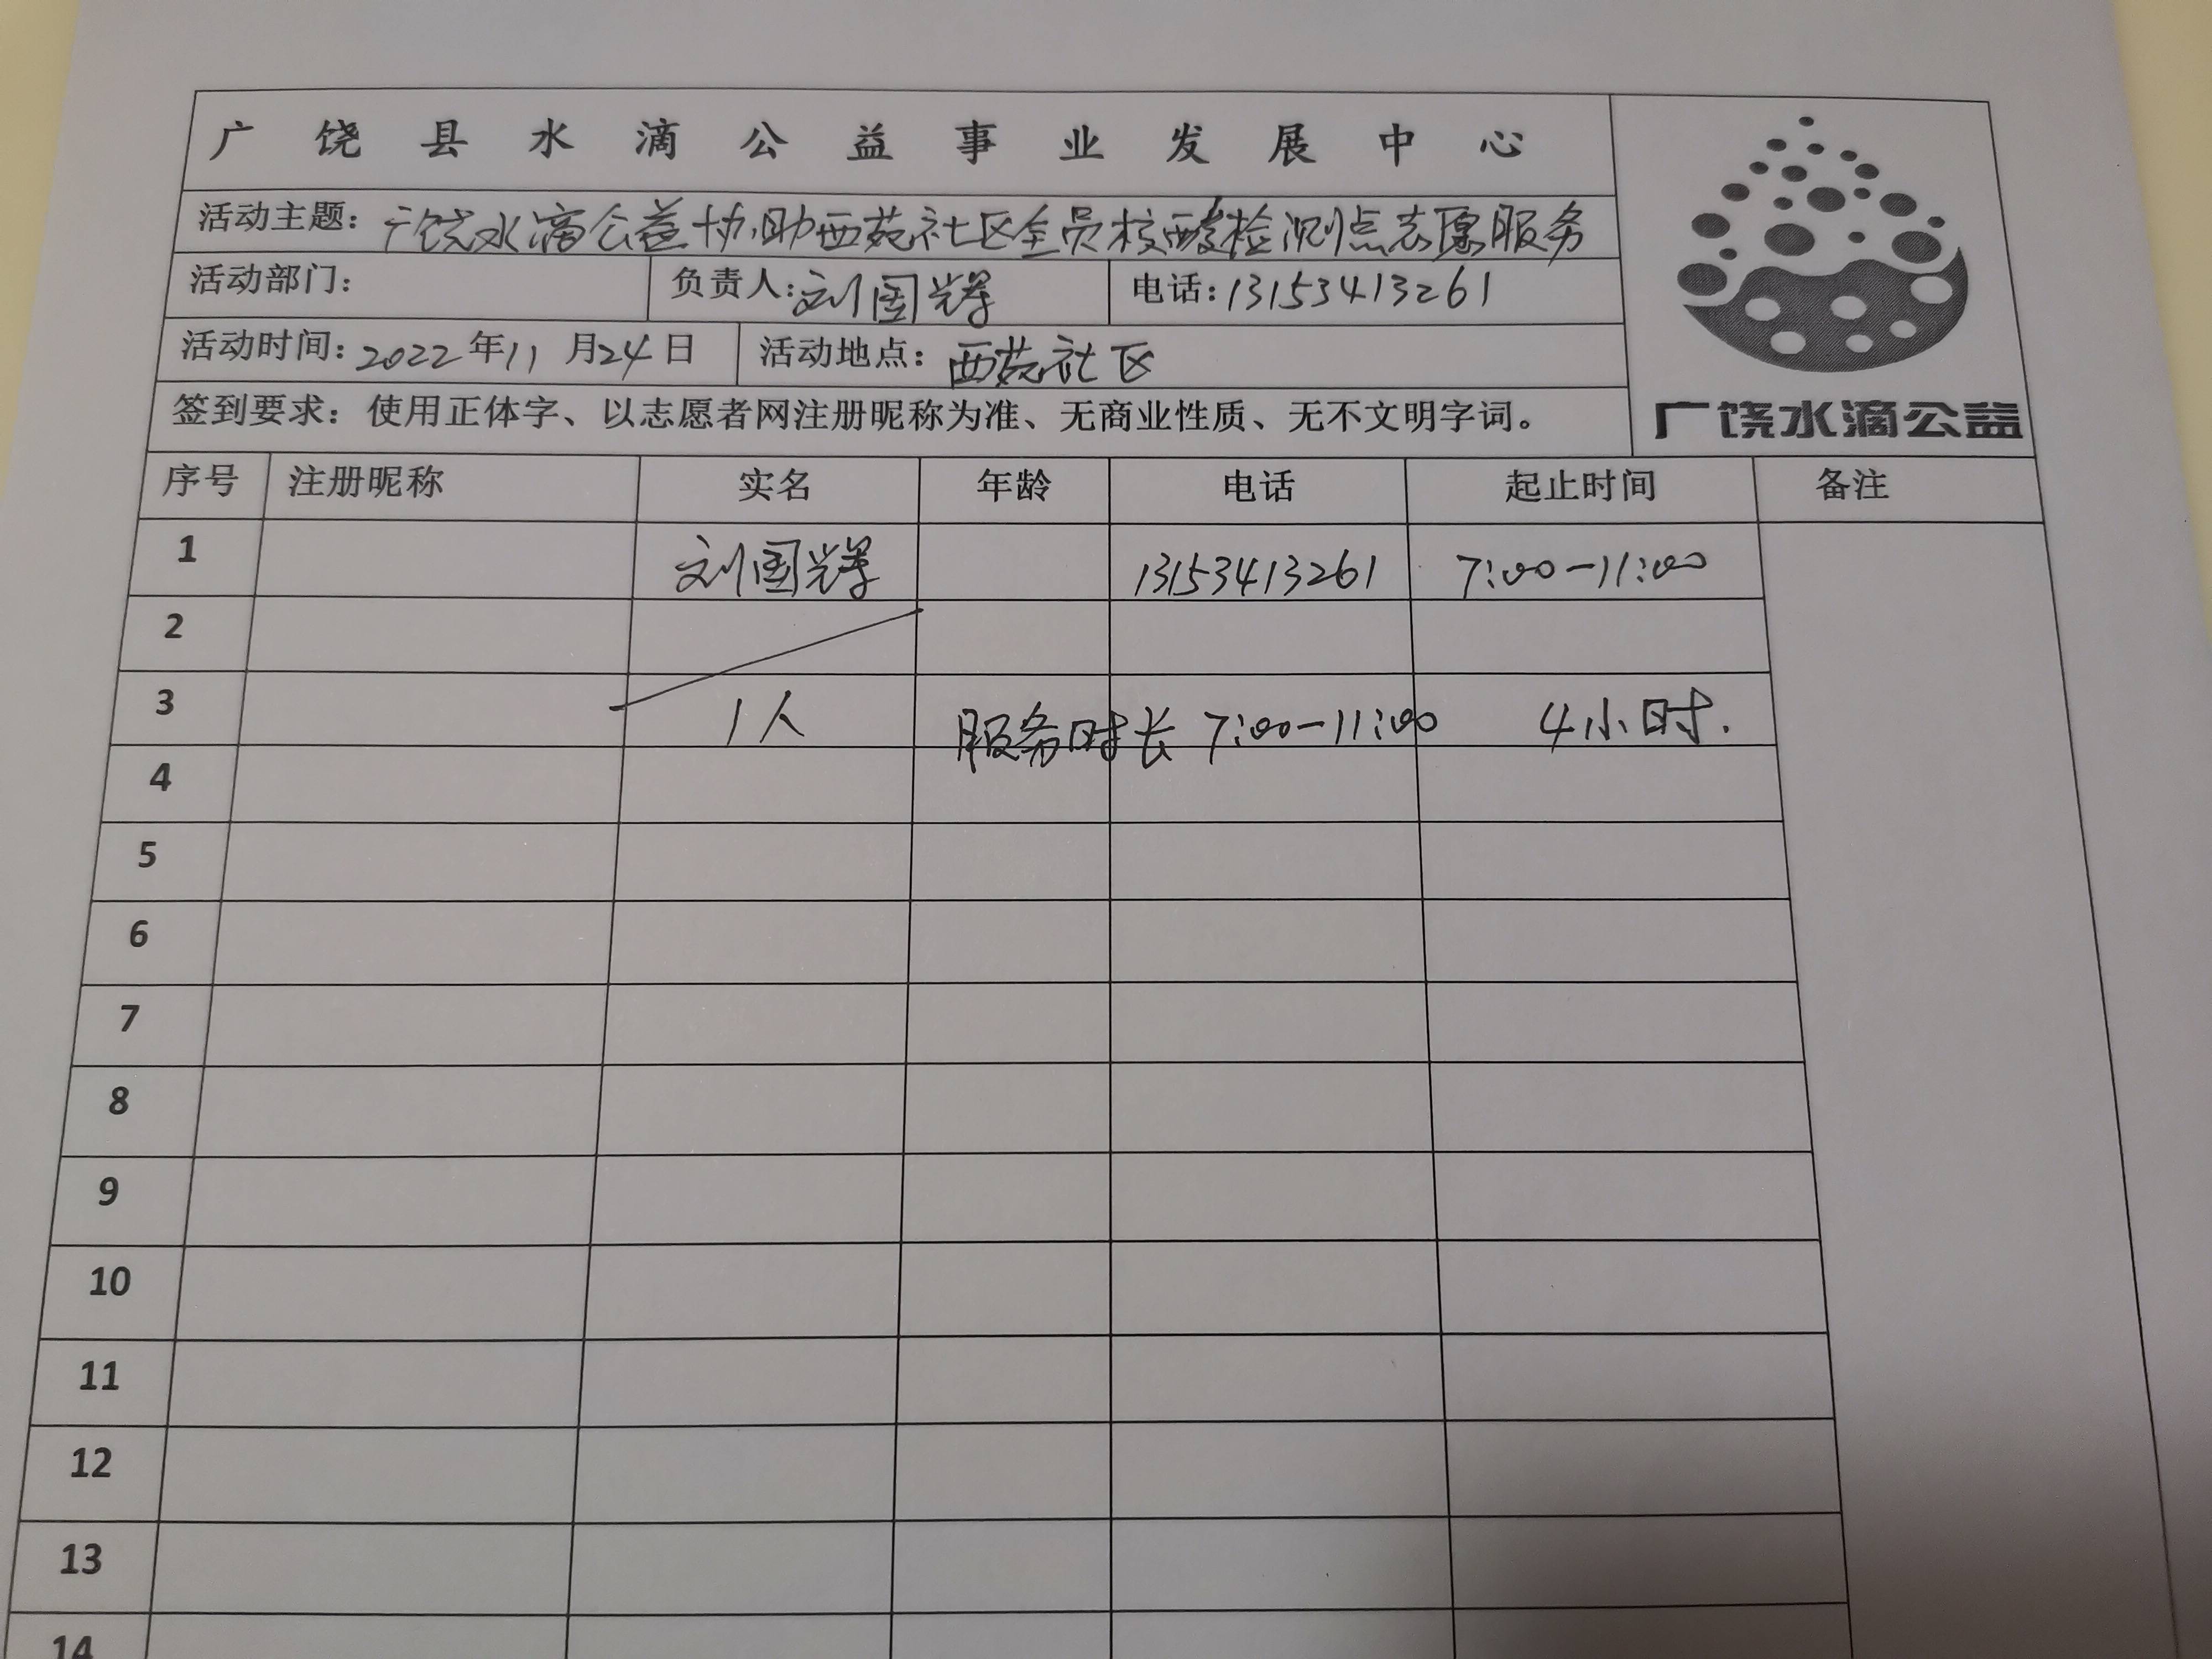 广饶县水滴公益事业发展中心
活动主题：广饶水滴公益协助西苑社区全员核酸检测点志愿服务
活动部门： 负责人：刘国辉 电话：13153413261
活动时间：2022年11月24日 活动地点：西苑社区
签到要求：使用正体字、以志愿者网注册昵称为准、无商业性质、无不文明字词。
广饶水滴公益
序号 注册昵称 实名 年龄 电话 起止时间 备注
1 刘国辉 13153413261 7:00-11:00
2
3 1人 服务时长 7:00-11:00 4小时.
4
5
6
7
8
9
10
11
12
13
14